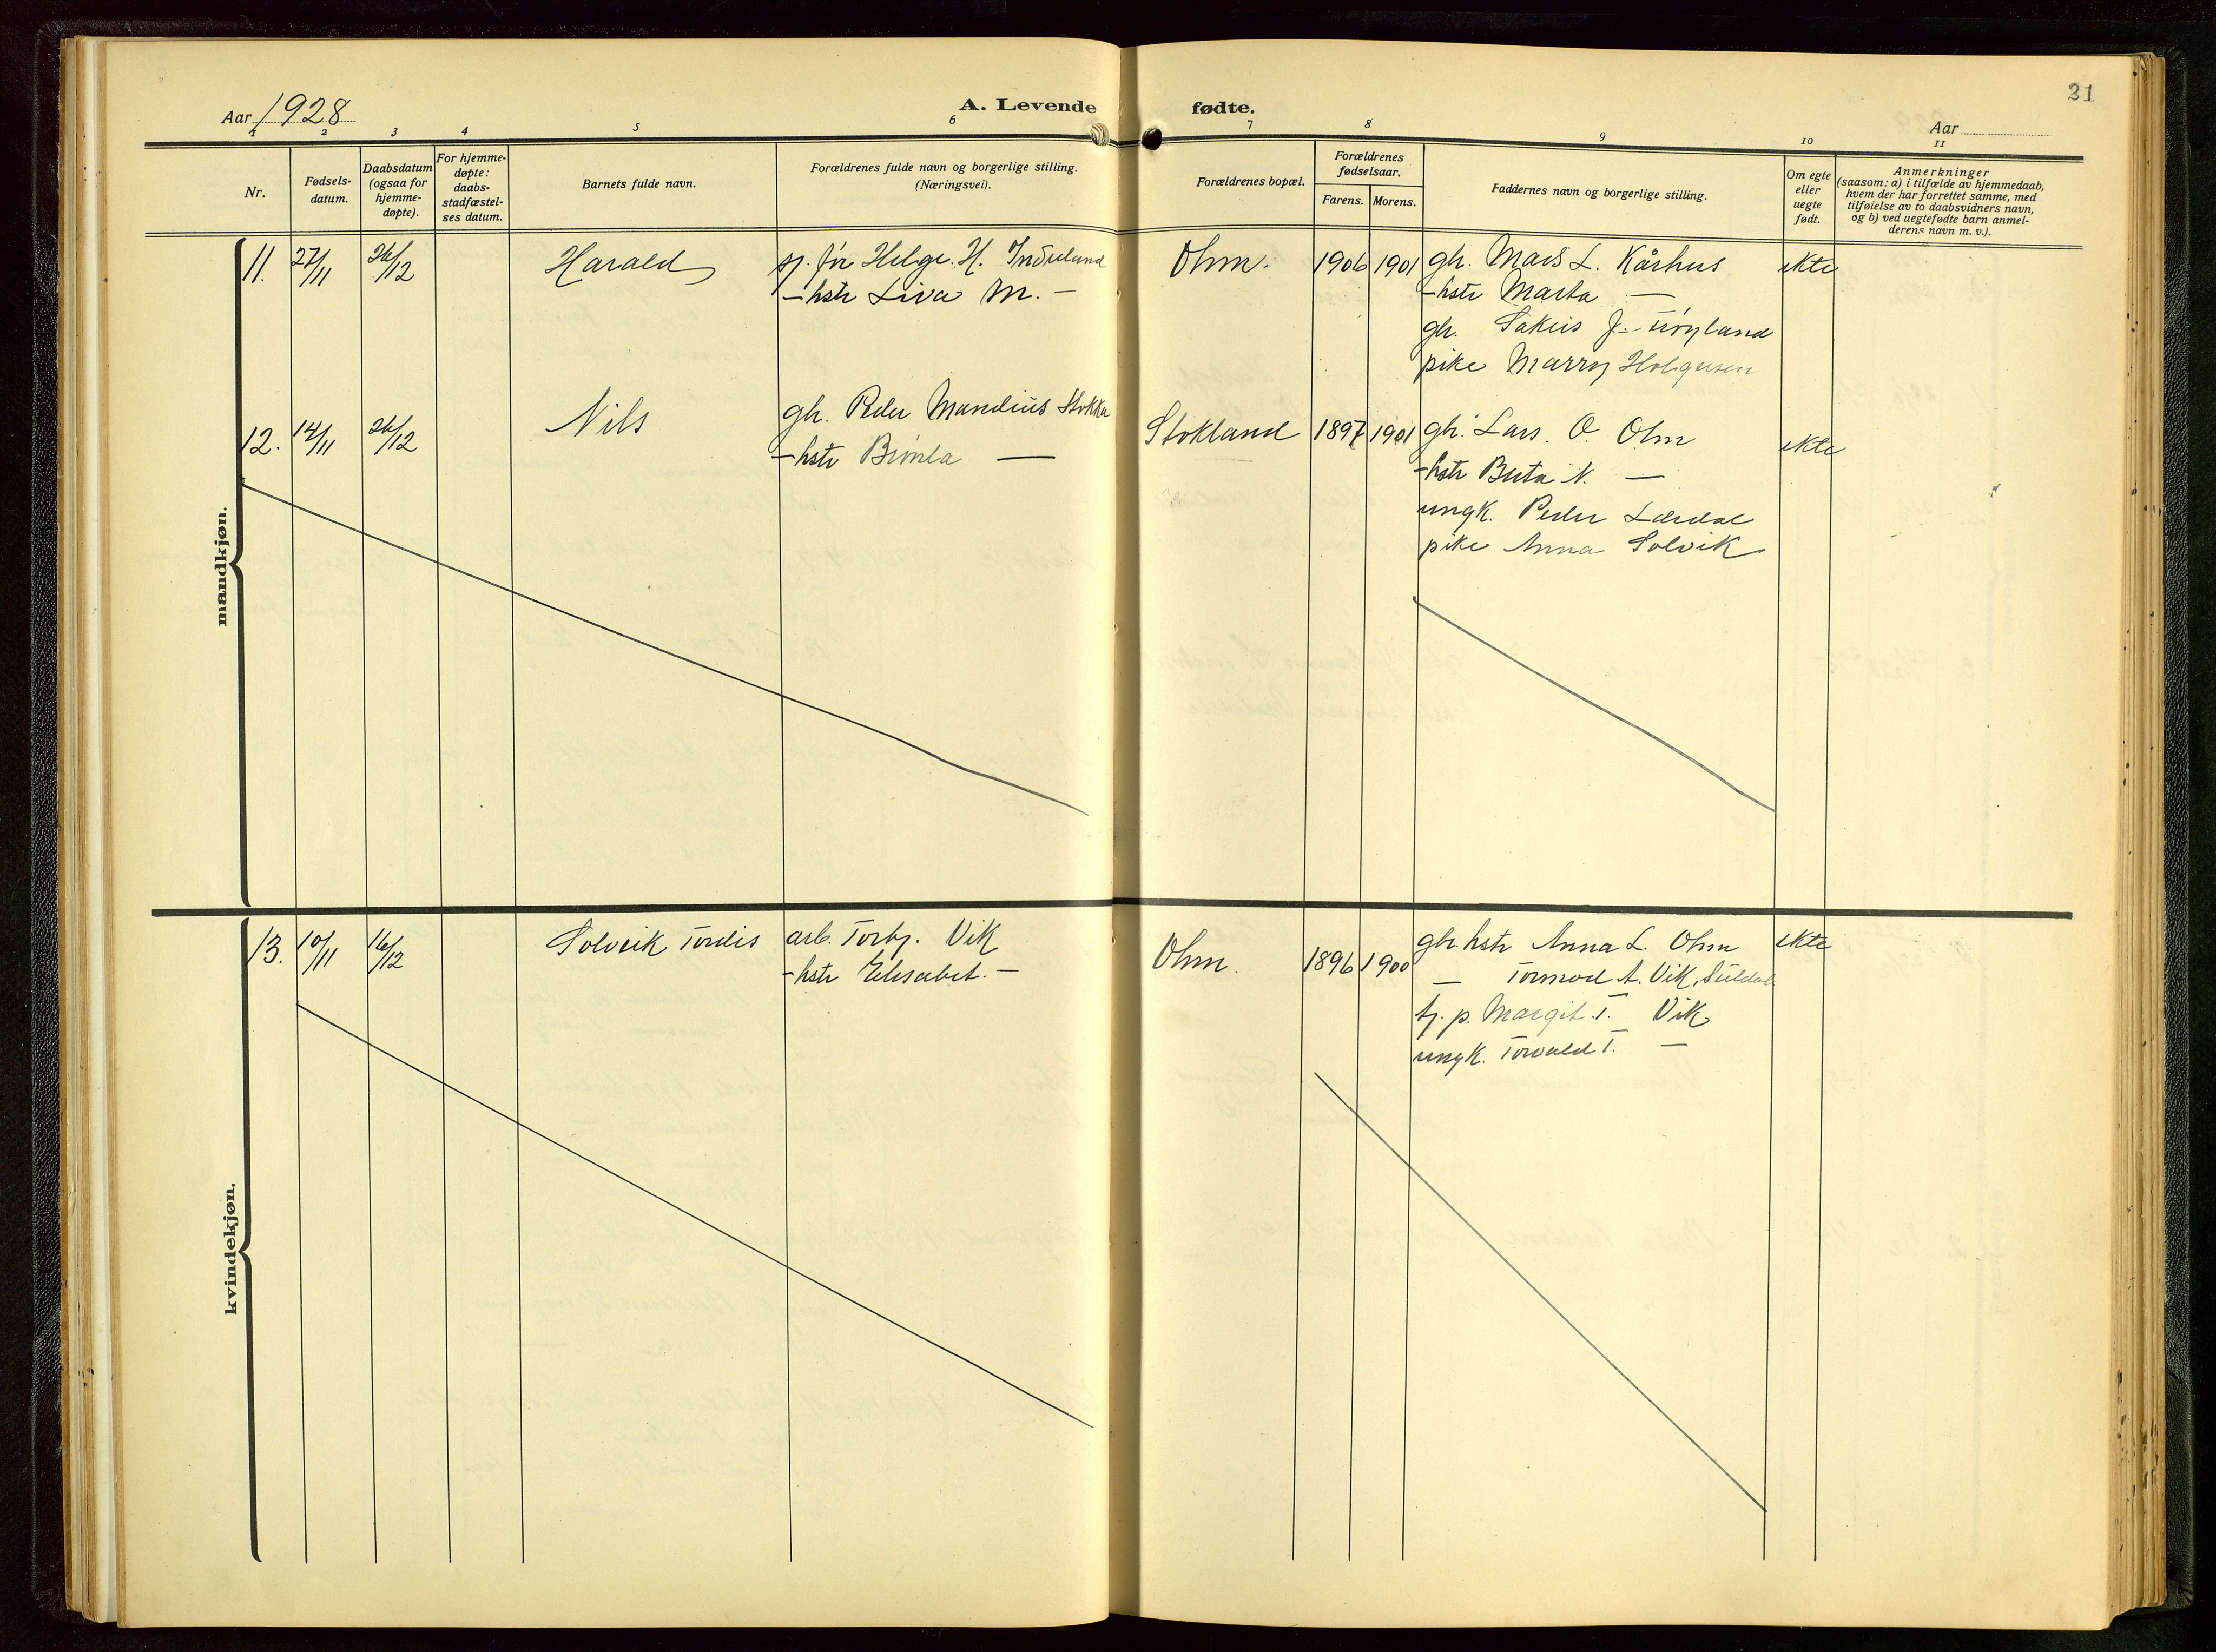 Aar 1928
A. Levende fødte.
21
Aar
1 2 3 4 5 6 7 8 9 10 11
Nr.
Fødsels-
datum.
Daabsdatum
(ogsaa for
hjemme-
døpte).
For hjemme-
døpte:
daabs-
stadfæstel-
ses datum.
Barnets fulde navn.
Forældrenes fulde navn og borgerlige stilling.
(Næringsvei).
Forældrenes bopæl.
Forældrenes
fødselsaar.
Farens. Morens.
Faddernes navn og borgerlige stilling.
Om egte
eller
uegte
født.
Anmerkninger
(saasom: a) i tilfælde av hjemmedaab,
hvem der har forrettet samme, med
tilføielse av to daabsvidners navn,
og b) ved uegtefødte barn anmel-
derens navn m. v.).
mandkjøn.
11. 27/11 26/12 Harald sj. før Helge H. Indreland Ohm. 1906 1901 gbr. Mads L. Kårhus ekte
- hstr Liva M. — - hstr Marta —
gbr. Sakus J. Frøyland
pike Marry Holgersen
12. 14/11 26/12 Nils gbr. Peder Mandius Stokka Stokland 1897 1901 gbr. Lars O. Ohm ekte
- hstr — - hstr Berta N. —
ungk. Peder Lærdal
pike Anna Solvik
kvindekjøn.
13. 10/11 16/12 Solveik Tordis arb. Torbj. Vik Ohm. 1896 1900 gbr hstr Anna L. Ohm ekte
- hstr Elisabet. — — Tormod A. Vik, Suldal
tj. p. Margit T. Vik
ungk. Torvald T. —